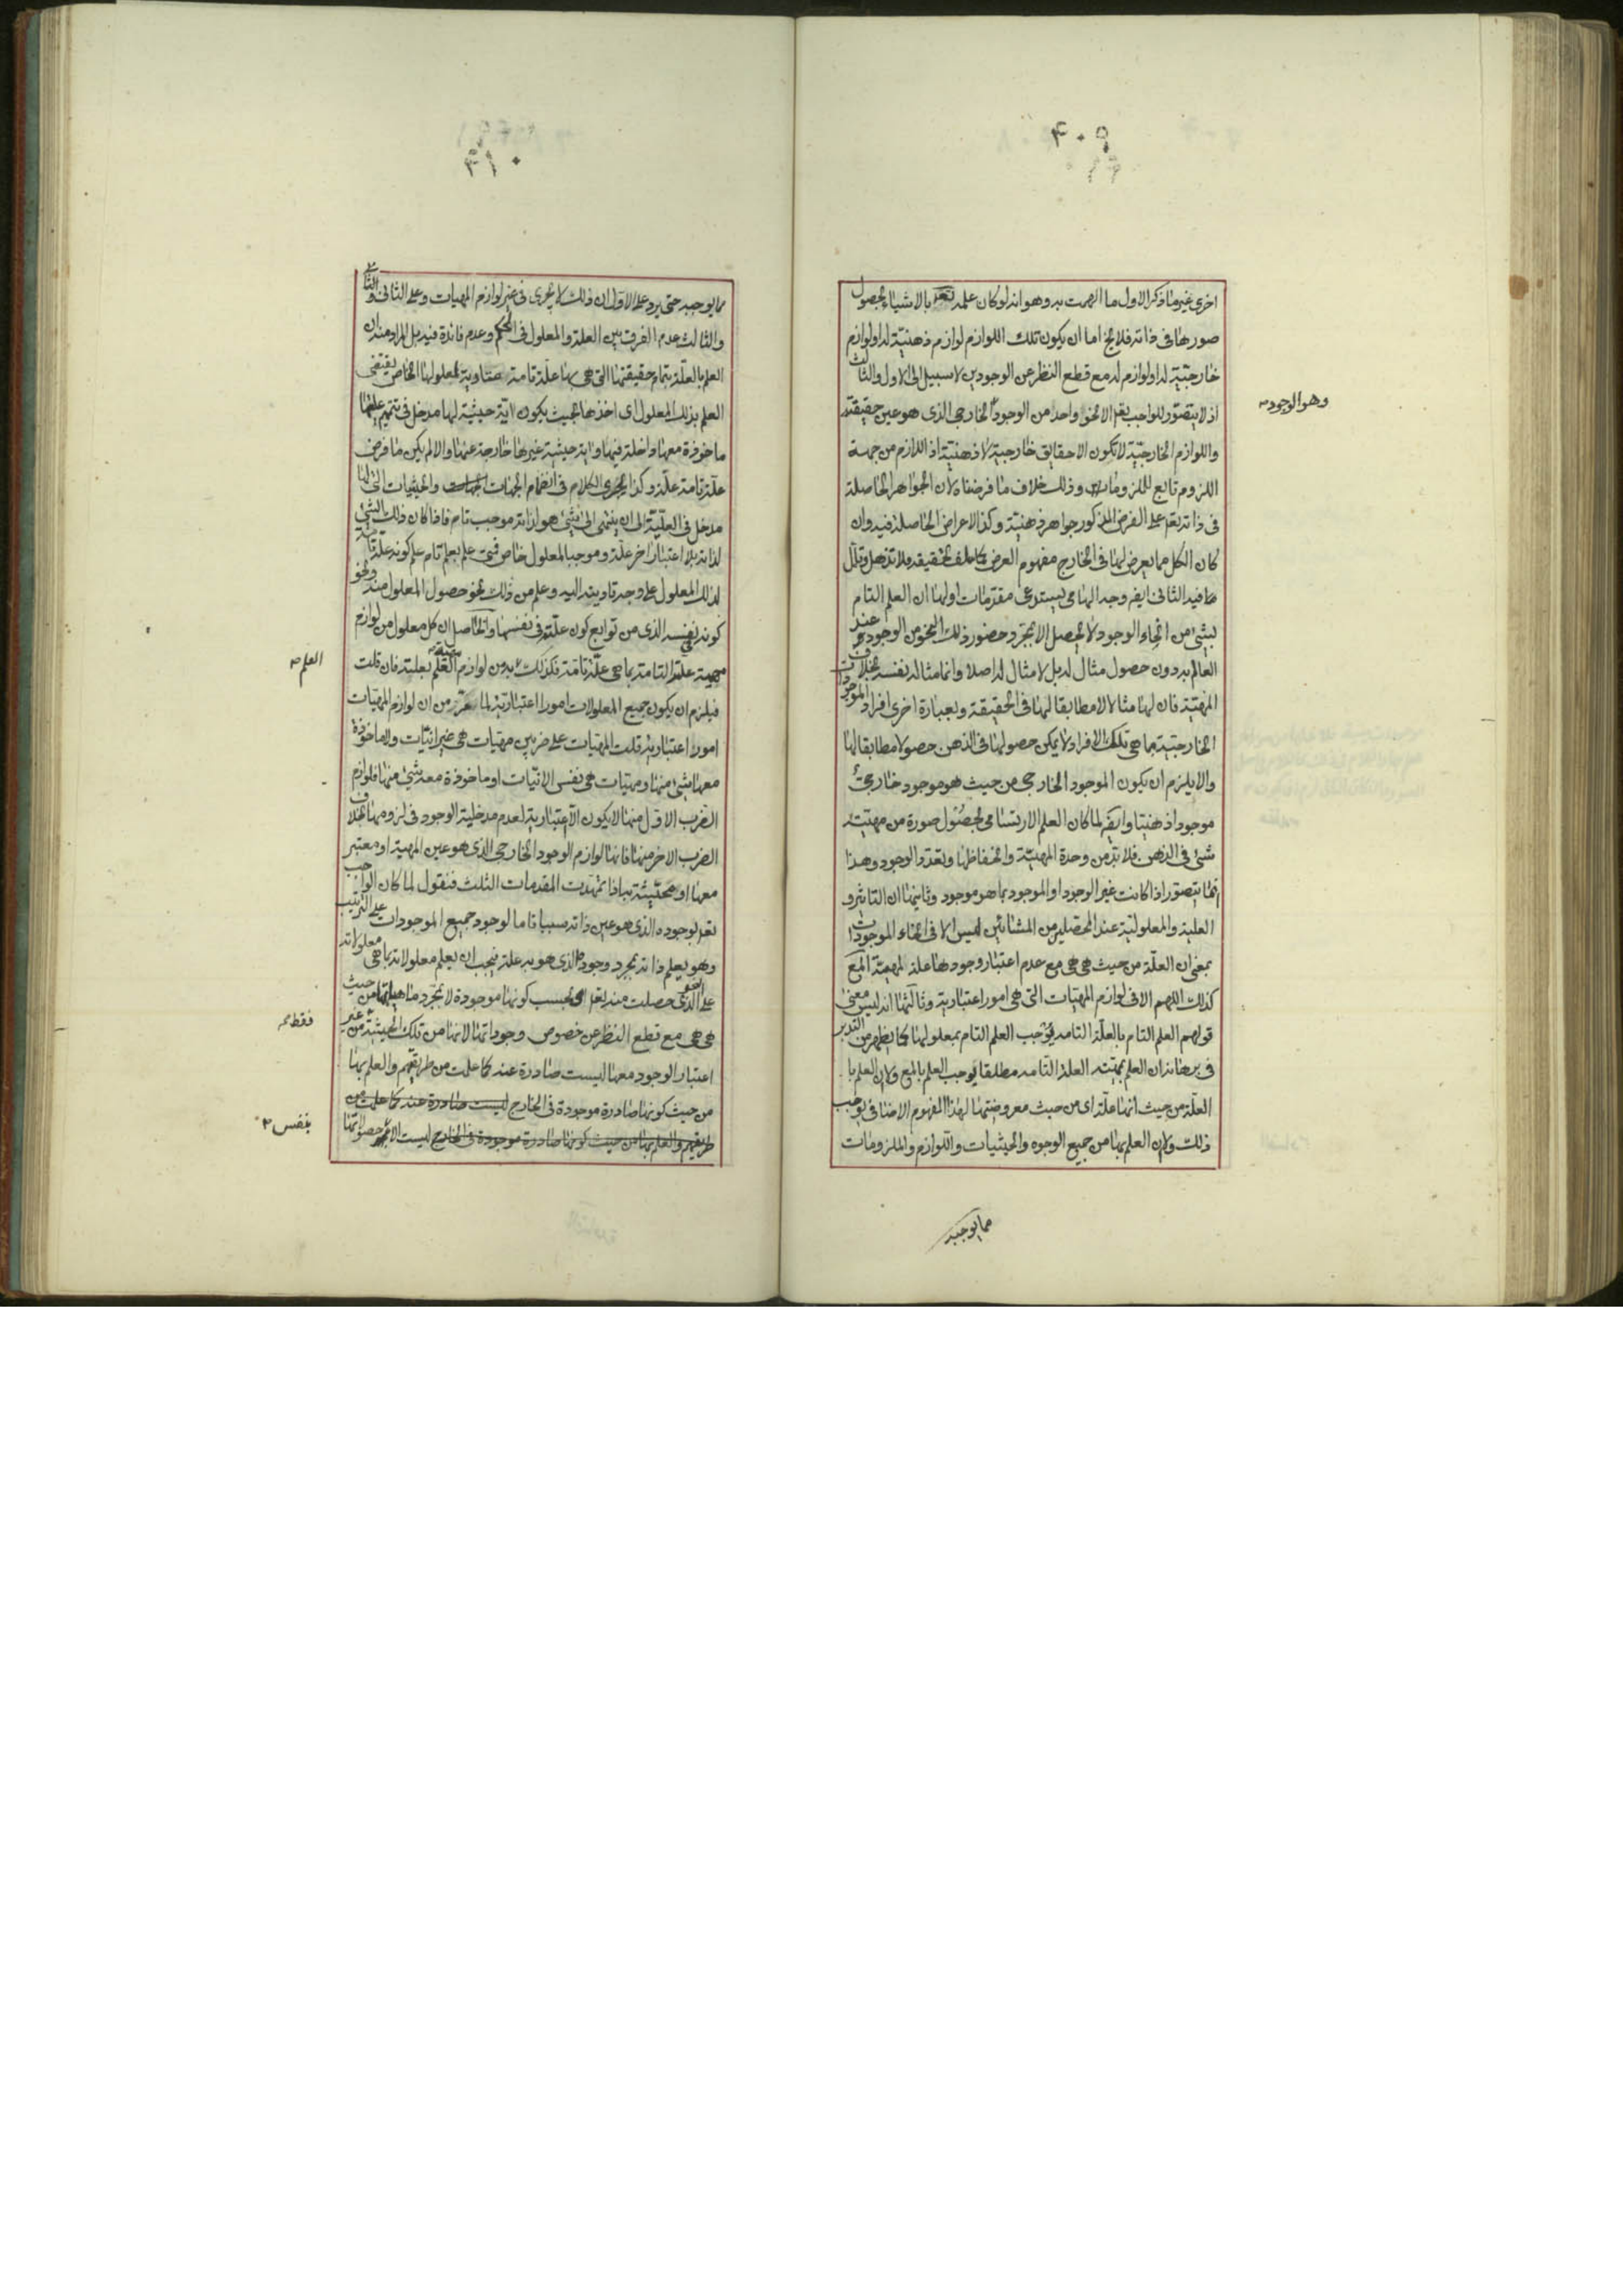 ٤٠٩
اخرى غير ما ذكر الاول ما الهمت به وهو انه لو كان علمه تعم بالاشياء بحصول
صورها فى ذاته فلا يخ اما ان يكون تلك اللوازم لوازم ذهنية له او لوازم
خارجية له او لوازم له مع قطع النظر عن الوجودين لا سبيل الى الاول والثالث
اذ لا يتصور للواجب تعم الا نحو واحد من الوجود الخارجى الذى هو عين حقيقته
وهو الوجود
واللوازم الخارجية لا تكون الا حقايق خارجية لا ذهنية اذ اللازم من جهة
اللزوم تابع للملزومات وذلك خلاف ما فرضناه لان الجواهر الحاصلة
فى ذاته تعم على الفرض المذكور جواهر ذهنية وكذا الاعراض الحاصلة فيه وان
كان الكل مما يعرض لها فى الخارج مفهوم العرض فلا تذهل وتأمل
ما فيه الثانى ايض وجه الهامى يستدعى مقدمات اولها ان العلم التام
بشئ من انحاء الوجود لا يحصل الا بمجرد حضور ذلك النحو من الوجود عند
العالم بدون حصول مثال له بل لا مثال له اصلا وانما مثاله نفسه بخلاف
المهية فان لها مثالا مطابقا لها فى الحقيقة وبعبارة اخرى افراد الموجودات
الخارجية بما هى تلك الافراد لا يمكن حصولها فى الذهن حصولا مطابقا لها
والا يلزم ان يكون الموجود الخارجى من حيث هو موجود خارجى
موجودا ذهنيا وايض لما كان العلم الارتسامى بحصول صورة من مهية
شئ فى الذهن فلا بد من وحدة المهية وانحفاظها وتعدد الوجود وهذا
انما يتصور اذا كانت غير الوجود او الموجود بما هو موجود وثانيها ان التاثير و
العلية والمعلولية عند المحصلين من المشائين ليس الا فى انحاء الموجودات
بمعنى ان العلة من حيث هى هى مع عدم اعتبار وجودها علة المهية المع
كذلك اللهم الا فى لوازم المهيات التى هى امور اعتبارية وثالثها انه ليس معنى
قولهم العلم التام بالعلة التامة يوجب العلم التام بمعلولها كما يظهر من التدبر
فى برهانه ان العلم بمهية العلة التامة مطلقا يوجب العلم بالمع ولا ان العلم با
العلة من حيث انها علة اى من حيث معروضيتها لهذا المفهوم الاضافى يوجب
ذلك ولا ان العلم بها من جميع الوجوه والحيثيات واللوازم والملزومات
مما يوجبه
٤١٠
مما يوجبه حتى يرد على الاول ان ذلك لا يجرى فى غير لوازم المهيات وعلى الثانى و
والثالث عدم الفرق بين العلة والمعلول فى الحكم وعدم فائدة فيه بل المراد منه ان
العلم بالعلة بتمام حقيقتها التى هى بها علة تامة مساوية لمعلولها الخاص يقتضى
العلم بذلك المعلول اى اخذها بحيث يكون اية حيثية لها مدخل فى تتميم عليتها
ماخوذة معها داخلة فيها واية حيثية غيرها خارجة عنها والا لم يكن ما فرض
علة تامة علة وكذا يجرى الكلام فى انضمام الجهات والحيثيات التى لها
مدخل فى العلية الى ان ينتهى الى شئ هو لذاته موجب تام فاذا كان ذلك الشئ
لذاته بلا اعتبار اخر علة وموجبا لمعلول خاص فمتى علم بعلم تام علم كونه علة تامة
لذلك المعلول على وجه تاديته اليه وعلم من ذلك نحو حصول المعلول منه ونحو
كونه نفسه الذى من توابع كون علته فى نفسها والحاصل ان كل معلول من لوازم
مهية علته التامة بما هى علة تامة فكذلك لا بد من لوازم العلم بعلته فان قلت
العلم
فيلزم ان يكون جميع المعلولات امورا اعتبارية لما تقرر من ان لوازم المهيات
امور اعتبارية قلت المهيات على ضربين مهيات هى غير انيات ولا ماخوذة
معها شئ منها ومهيات هى نفس الانيات او ماخوذة معه شئ منها فلوازم
الضرب الاول منها لا يكون الا اعتبارية لعدم مدخلية الوجود فى لزومها بخلاف
الضرب الاخر منها فانها لوازم الوجود الخارجى الذى هو عين المهية او معتبر
معها او محيثة بها فاذا تمهدت المقدمات الثلث فنقول لما كان الواجب
تعم بوجوده الذى هو عين ذاته سببا تاما لوجود جميع الموجودات على الترتيب
وهو يعلم ذاته بمجرد وجوده الذى هو به علة فيجب ان يعلم معلولاته بما هى معلولاته
على النحو الذى حصلت منه تعم اى بحسب كونها موجودة لا بمجرد ماهياتها من حيث
هى هى مع قطع النظر عن خصوص وجوداتها لانها من تلك الحيثية من غير
فقط
اعتبار الوجود معها ليست صادرة عنه كما علمت من طريقهم والعلم بها
من حيث كونها صادرة موجودة فى الخارج ليست صادرة عنه كما علمت من
طريقهم والعلم بها من حيث كونها صادرة موجودة فى الخارج ليست الا حصولاتها
بنفس